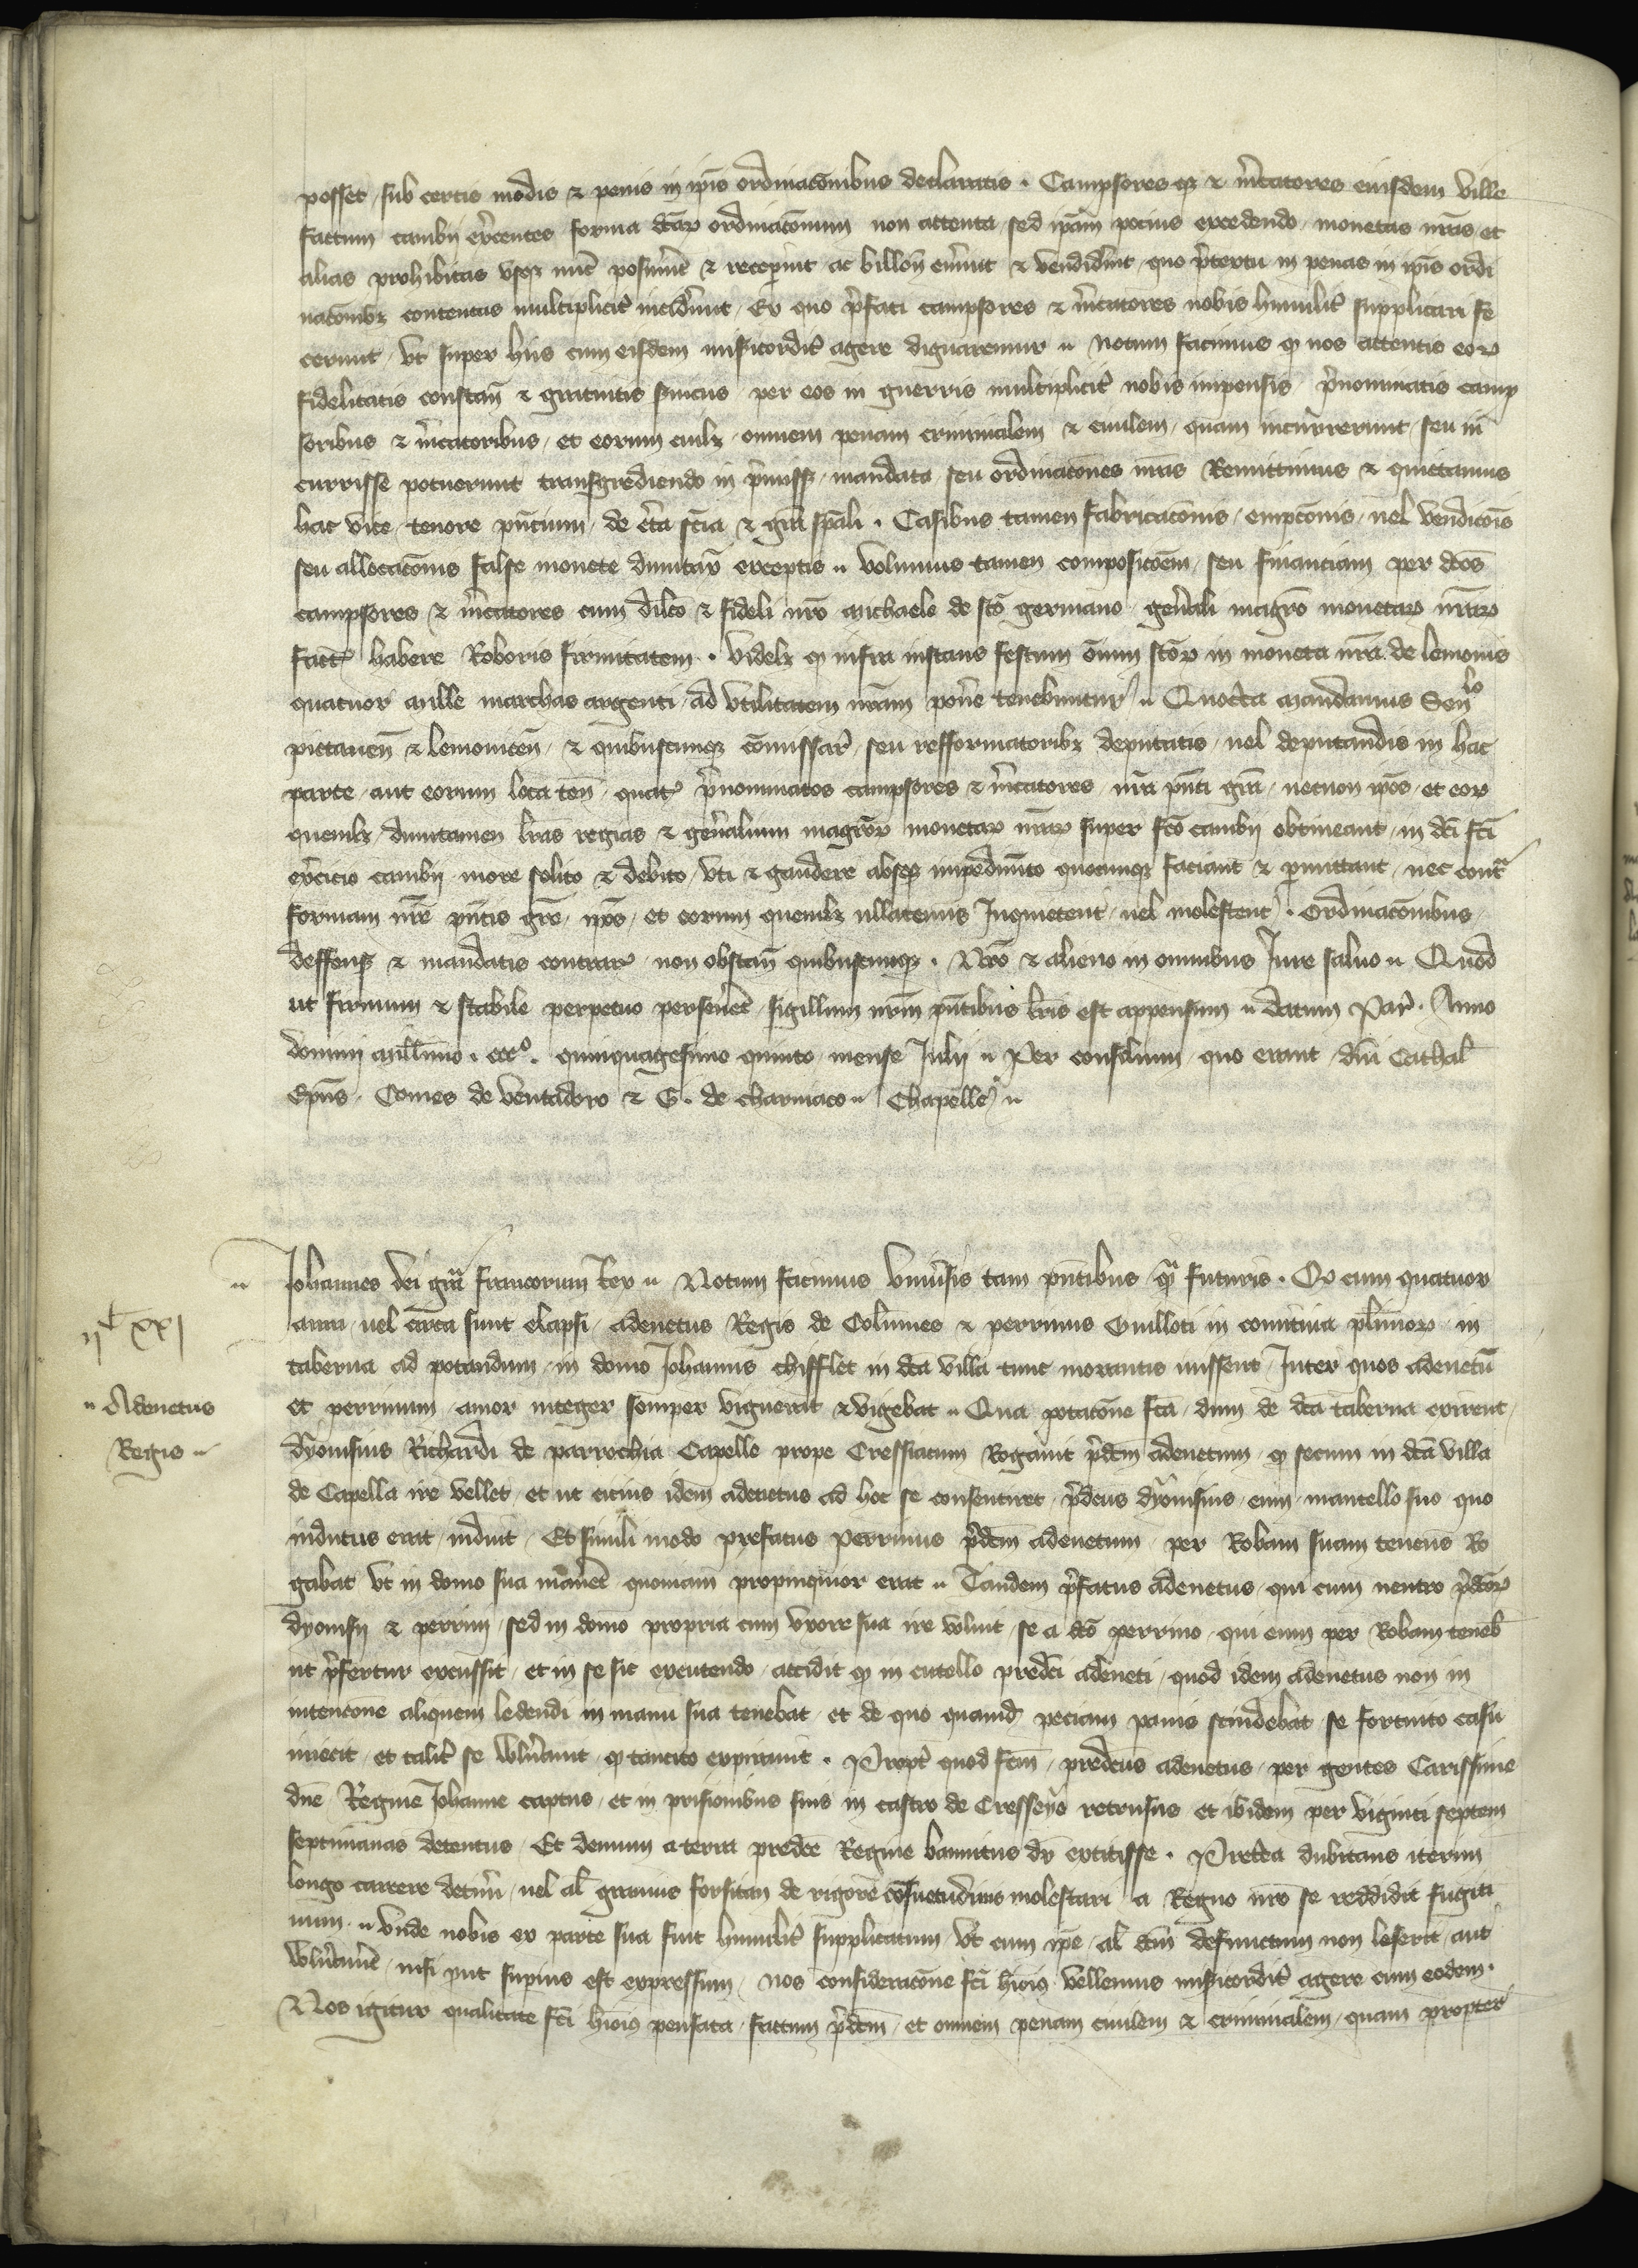 posset / sub certis modis ⁊ penis in ip̄is ordinacōnibus declaratis . Campsores qȝ ⁊ m̄catores eiusdem ville
factum cambij exēcentes forma dc̄aꝝ ordinacōnum non attenta / sed ip̄am pocius excedendo / monetas nr̄as et
alias prohibitas vsqȝ nūc posuerūt ⁊ recep̄unt ac billon̄ emerūt ⁊ vendider̄nt / quo p̄textu in penas in ip̄is ordi
nacōnibȝ contentas multiplicit̄ incider̄unt / Ex quo p̄fati campsores ⁊ m̄catores nobis humilit̄ supplicari fe
cerunt / vt super hijs cum eisdem mis̄icordit̄ agere dignaremur ꞏꞏ Notum facimus qꝫ nos attentis eoꝝ
fidelitatis constan̄ ⁊ gratuitis s̄uicijs per eos in guerris multiplicit̄ nobis impensis / p̄nominatis camp
soribus ⁊ m̄catoribus / et eorum cuilȝ / omnem penam criminalem ⁊ ciuilem / quam incurrerunt / seu in
currisse potuerunt transgrediendo in p̄missȝ / mandata seu ordinacōnes nr̄as Remittimus ⁊ quictamus
hac vice / tenore pn̄cium / de c̄ta sc̄ia ⁊ gr̄a sp̄ali . Casibus tamen fabricacōnis / empcōnis / uel vendicōis
seu allocacōnis false monete dumtax̄ exceptis ꞏꞏ Volumus tamen composicōem / seu financiam per dc̄os
campsores ⁊ m̄catores cum dil̄co ⁊ fideli nr̄o Michaele de sc̄o germano / gen̄ali magr̄o monetaꝝ nr̄aꝝ
fact̄ habere Roboris firmitatem . Videlȝ qꝫ infra instans festum ōnium sc̄oꝝ in moneta nr̄a de lemouis
quatuor Mille marchas argenti / ad vtilitatem nr̄am pon̄e tenebuntur ꞏꞏ Quoc̄ca Mandamus Sen̄lo
pictauen̄ ⁊ lemouicen̄ / ⁊ quibuscumqȝ cōmissar̄ / seu refformatoribȝ deputatis / uel deputandis in hac
parte / aut eorum loca ten̄ / quat̄ p̄nominatos campsores ⁊ m̄catores / nr̄a pn̄ti gr̄a / necnon ip̄os / et eoꝝ
quemlȝ / dumtamen lr̄as regias ⁊ gen̄alium magr̄oꝝ monetaꝝ nr̄aꝝ super fc̄o cambij obtineant / in dc̄i fc̄i
ex̄cicio cambij more solito ⁊ debito / vti ⁊ gaudere absqȝ impedim̄to quocumqȝ faciant ⁊ p̄mittant / nec contͣ
formam nr̄e pn̄tis gr̄e / ip̄os / et eorum quemlȝ ullatenus Inquietent / uel molestent . Ordinacōnibus /
deffensȝ ⁊ mandatis contrar̄ non obstan̄ quibuscumqȝ . Nr̄o ⁊ alieno in omnibus Jure saluo ꞏꞏ Quod
ut firmum ⁊ stabile perpetuo perseuer̄t / sigillum nr̄m pn̄tibus lr̄is est appensum ꞏꞏ datum Par̄ . Anno
domini Mill̄imo . cccº . quinquagesimo quinto / mense Julij ꞏꞏ Per consilium / quo erant / dn̄i Cathal̄
Ep̄us . Comes de Ventadoro ⁊ G . de charniaco ꞏꞏ Chapelle ꞏꞏ
Johannes dei gr̄a francorum Rex ꞏꞏ Notum facimus Vniu̅sis tam pn̄tibus qͣ futuris . Qꝫ cum quatuor
anni / uel circa sunt elapsi / adenetus Regis de Colūmes ⁊ perrinus Guilloti in comitiua pl̄imoꝝ / in
taberna ad potandum / in domo Johannis chifflet in dc̄a villa tunc morantis iuissent / Inter quos adenetū
et perrinum / amor integer semper viguerat ⁊ vigebat ꞏꞏ Qua potacōne fc̄a / dum de dc̄a taberna exirent /
dyonisius Richardi de parrochia Capelle prope Cressiacum Rogauit p̄dc̄m adenetum / qꝫ secum in dc̄a villa
de Capella ire vellet / et ut cicius idem adenetus ad hoc se consentiret / p̄dc̄us dyonisius / eum / mantello suo quo
indutus erat / induit / Et simili modo prefatus Perrinus p̄dc̄m adenetum / per Robam suam tenens Ro
gabat vt in domo sua maner̄t quoniam propinquior erat ꞏꞏ Tandem p̄fatus adenetus / qui cum neutro p̄dc̄oꝝ
dyonisij ⁊ perrini / sed in domo propria cum vxore sua ire voluit / se a dc̄o perrino / qui eum per Robam teneb̄
ut p̄fertur excussit / et in se sic excutendo / accidit qꝫ in cutello predc̄i adeneti / quod idem adenetus non in
intencōne aliquem ledendi in manu sua tenebat / et de quo quamd̄ peciam panis scindebat / se fortuito casu
iniecit / et talit̄ se vuln̄auit / qꝫ tancito expirauit . Propt̄ quod fc̄m / predc̄us adenetus / per gentes Carissime
dn̄e Regine Johanne captus / et in prisionibus suis in castro de Cresseyo retrusus / et ibidem per viginti septem
septimanas detentus / Et demum a terra predc̄e Regine bannitus dr̄ extitisse . Pret̄ea dubitans iterum
longo carcere detin̄i / uel al̄ grauius forsitan de rigore cōsuetudinis molestari / a Regno nr̄o se reddidit fugiti
uum ꞏꞏ Vnde nobis ex parte sua fuit humilit̄ supplicatum / vt cum ip̄e / al̄ dc̄m defunctum non leserit / aut
vuln̄auer̄t / nisi put superius est expressum / nos consideracōne fc̄i hmōi vellemus mis̄icordit̄ agere cum eodem .
Nos igitur qualitate fc̄i hmōi pensata / factum p̄dc̄m / et omnem penam ciuilem ⁊ criminalem / quam propter
ijᶜ xxj
ꞏꞏ Adenetus
Regis ꞏꞏ